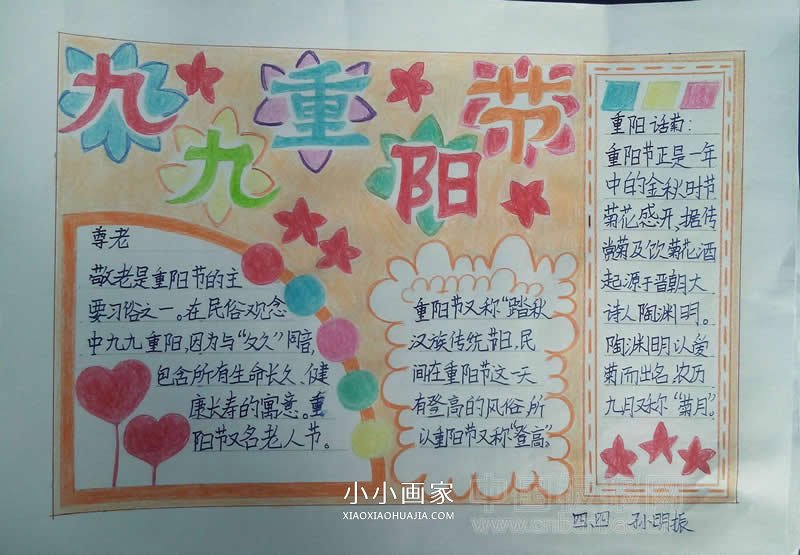 九九重阳节
尊老
敬老是重阳节的主
要习俗之一。在民俗观念
中九九重阳,因为与“久久”同音,
包含所有生命长久、健
康长寿的寓意。重
阳节又名老人节。
重阳节又称“踏秋
汉族传统节日,民
间在重阳节这一天
有登高的风俗,所
以重阳节又称“登高”。
重阳话菊:
重阳节正是一年
中的金秋时节
菊花感开,据传
赏菊及饮菊花酒
起源于晋朝大
诗人陶渊明。
陶渊明以爱
菊而出名,农历
九月又称“菊月”。
小小画家
XIAOXIAOHUAJIA.COM
四、四 孙明振